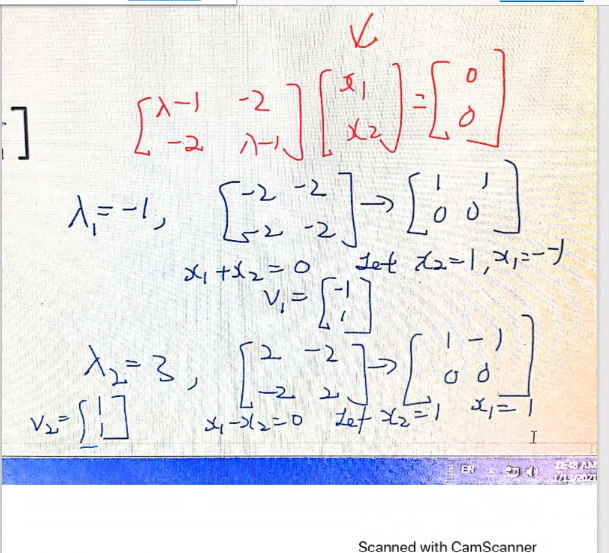 V
[λ-1 -2
-2 λ-1] [x₁
x₂] = [0
0]
]
λ₁ = -1, [-2 -2
-2 -2] → [1 1
0 0]
x₁ + x₂ = 0 Let x₂ = 1, x₁ = -1
V₁ = [-1
1]
λ₂ = 3, [2 -2
-2 2] → [1 -1
0 0]
V₂ = [1
1] x₁ - x₂ = 0 Let x₂ = 1 x₁ = 1
EN
AM
1/13/2021
Scanned with CamScanner